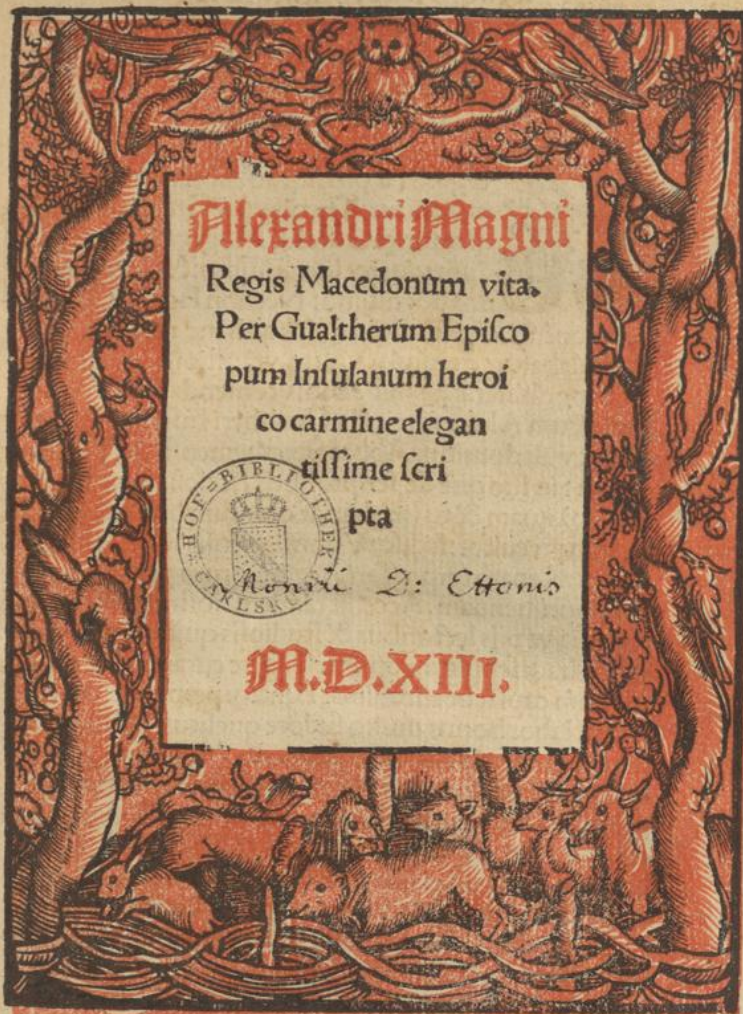 Alexandri Magni
Regis Macedonūm vita.
Per Gualtherum Epiſco
pum Inſulanum heroi
co carmine elegan
tiſſime ſcri
pta
HOF=BIBLIOTHEK
CARLSRUHE
D: Ettonis
M.D.XIII.